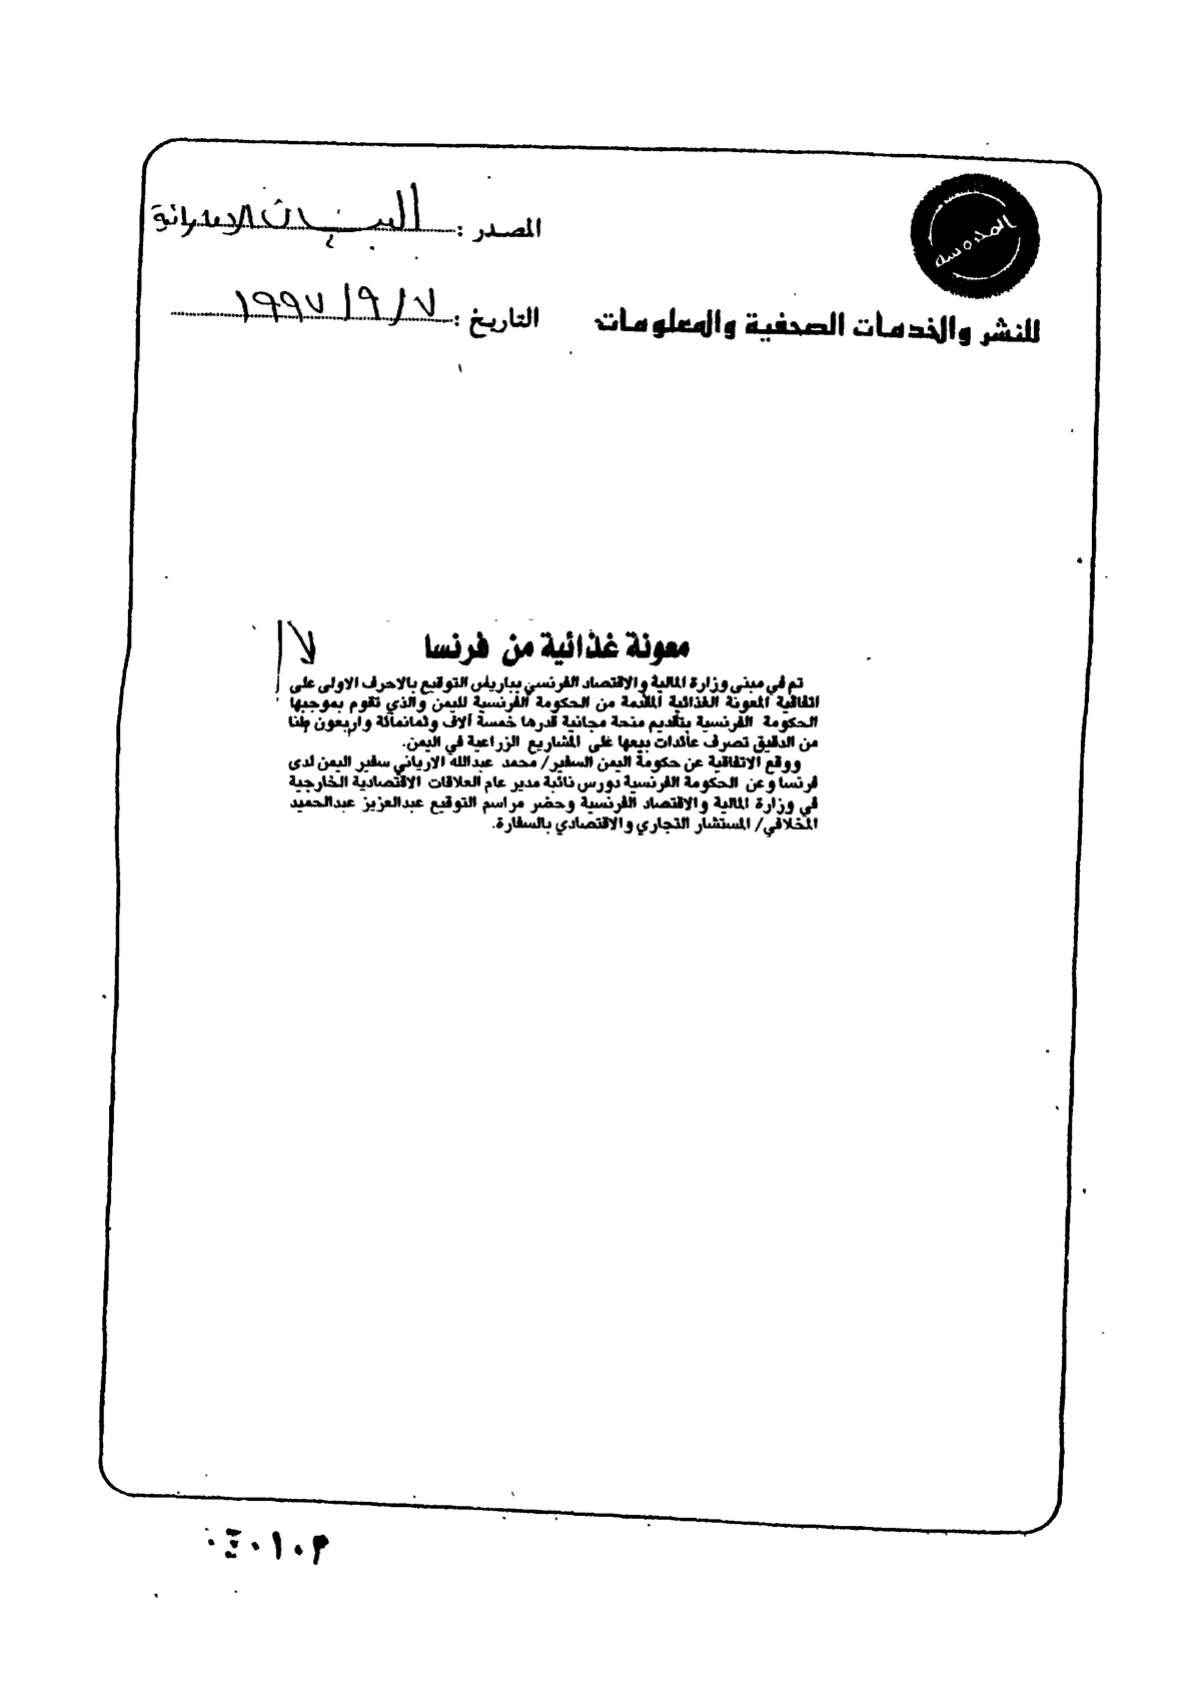 المحروسه
المصدر :
للنشر والخدمات الصحفية والمعلومات
التاريخ : ٧ / ٩ / ١٩٩٧
معونة غذائية من فرنسا
تم في مبنى وزارة المالية والاقتصاد الفرنسي بباريس التوقيع بالاحرف الاولى على
اتفاقية المعونة الغذائية المقدمة من الحكومة الفرنسية لليمن والذي تقوم بموجبها
الحكومة الفرنسية بتقديم منحة مجانية قدرها خمسة آلاف وثمانمائة واربعون طنا
من الدقيق تصرف عائدات بيعها على المشاريع الزراعية في اليمن.
ووقع الاتفاقية عن حكومة اليمن السفير/ محمد عبدالله الارياني سفير اليمن لدى
فرنسا وعن الحكومة الفرنسية دورس نائبة مدير عام العلاقات الاقتصادية الخارجية
في وزارة المالية والاقتصاد الفرنسية وحضر مراسم التوقيع عبدالعزيز عبدالحميد
المخلافي/ المستشار التجاري والاقتصادي بالسفارة.